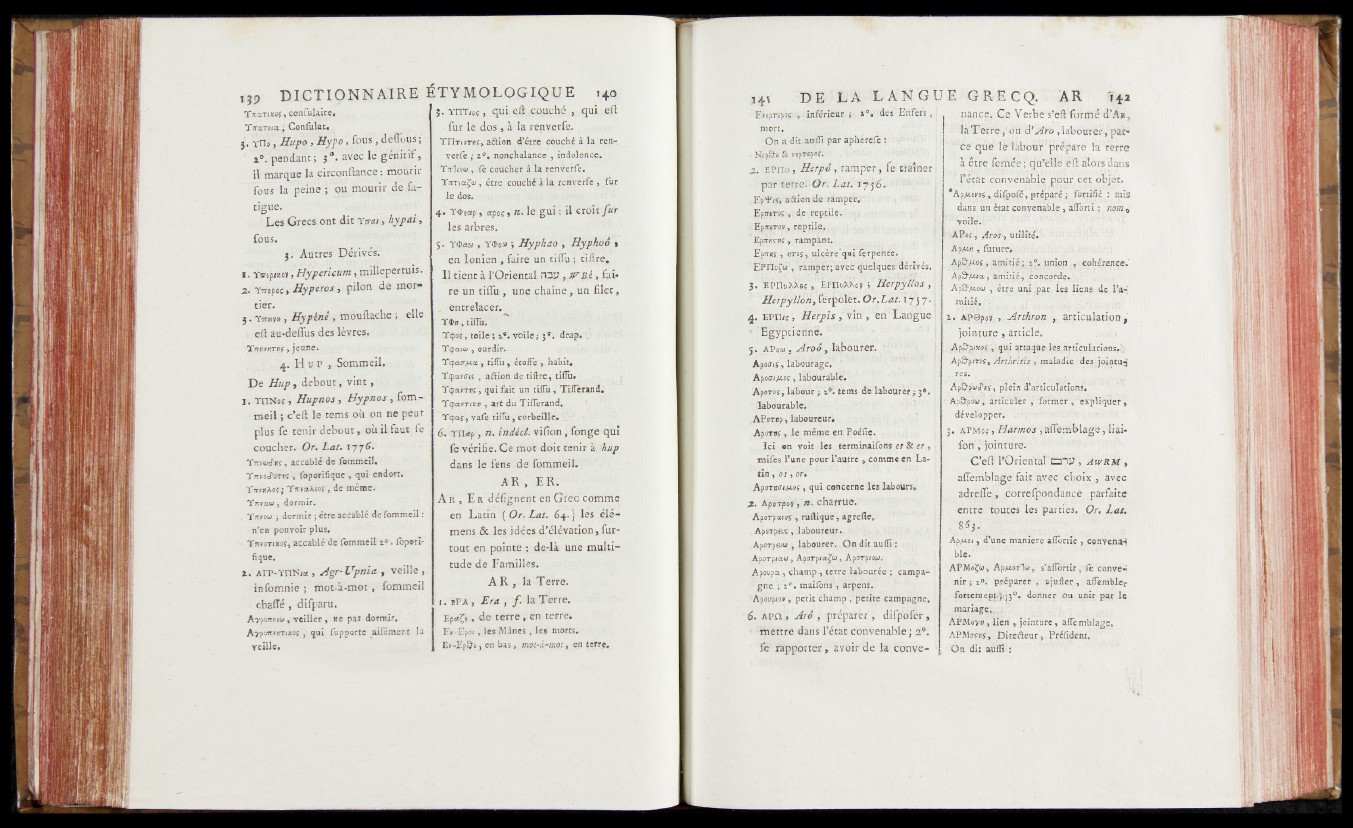 139 DICTIONNAIRE ÉTYMOLOGIQUE 140
Υπατικος, conſulaire.
Υπατεια, Conſulat.
3. ΥΠο, Hupo, Hypo, ſous, deſſous;
2°. pendant; 3°. avec le génitif,
il marque la circonſtance: mourir
ſous la peine; ou mourir de fa-
tigue.
Les Grecs ont dit Υπαι, hypai,
ſous.
3. Autres Dérivés.
1. Υπερικον, Hypericum, millepertuis.
2. Υπερος, Hyperos, pilon de mor-
tier.
3. Υπηνη, Hypéné, mouſtache; elle
eſt au-deſſus des lèvres.
Υπηνητης, jeune.
4. HUP, Sommeil.
De Hup, debout, vint,
1. ΥΠΝος, Hupnos, Hypnos, ſom-
meil; c'eſt le tems où on ne peut
plus ſe tenir debout, où il faut ſe
coucher. Or. Lat. 1776.
Υπνωδης, accablé de ſommeil.
Υπνοδοτης, ſoporifique, qui endort.
Υπνηλος; Υπναλεος, de même.
Υπναω, dormir.
Υπνοω; dormir; être accablé de ſommeil:
n'en pouvoir plus.
Υπνοτικος, accablé de ſommeil 2°. ſopori-
fique.
2. ΑΓΡ-ΥΠΝια, Agr-Upnia, veille,
inſomnie; mot-à-mot, ſommeil
chaſſé, diſparu.
Αγρυπνεω, veiller, ne pas dormir.
Αγρυπνητικος, qui ſupporte aiſément la
veille.
3. ΥΠΤιος, qui eſt couché, qui eſt
ſur le dos, à la renverſe.
ΥΠΤιοτης, action d'être couché à la ren-
verſe; 2°. nonchalance, indolence.
ſe coucher à la renverſe.
Υπτιαζω, être couché à la renverſe, ſur
le dos.
4. ΥΦεαρ, αρος, n. le gui: il croît ſur
les arbres.
5. ΥΦαω, ΥΦοω; Hyphao, Hyphoó,
en Ionien, faire un tiſſu; tiſtre.
Il tient à l'Oriental עבה, WBé, fai-
re un tiſſu, une chaîne, un filet,
entrelacer.
ΥΦη, tiſſu.
Υφος, toile; 2°. voile; 3°. drap.
Υφαιω, ourdir.
Υφασμα, tiſſu, étoffe, habit.
Υφανσις, action de tiſtre, tiſſu.
Υφαντης, qui fait un tiſſu, Tiſſerand.
Υφαντικη, art du Tiſſerand.
Υφας, vaſe tiſſu, corbeille.
6. ΥΠαρ, n. indécl. viſion, ſonge qui
ſe vérifie. Ce mot doit tenir à hup
dans le ſens de ſommeil.
AR, ER.
AR, ER déſignent en Grec comme
en Latin (Or. Lat. 64.) les élé-
mens & les idées d'élévation, ſur-
tout en pointe: de-là une multi-
tude de Familles.
AR, la Terre.
1. ΕΡΑ, Era, f. la Terre.
Εραζε, de terre, en terre.
Εν-Εροι, les Mânes, les morts.
Εν-Ερθε, en bas, mot-à-mot, en terre.
141 DE LA LANGUE GRECQ. AR 142
Ενερτερος, inférieur; 2°. des Enfers,
mort.
On a dit auſſi par aphereſe:
Νερθε & νερτερος.
2. ΕΡΠω, Herpó, ramper, ſe traîner
par terre. Or. Lat. 1756.
Ερψις, action de ramper.
Ερπετος, de reptile.
Ερπετον, reptile.
Ερπηςης, rampant.
Ερπης, ητος, ulcère qui ſerpente.
ΕΡΠυζω, ramper; avec quelques dérivés.
3. ΕΡΠυλλος, ΕΡΠυλλον; Herpyllos,
Herpyllon, ſerpolet. Or. Lat. 1757.
4. ΕΡΠις, Herpis, vin, en Langue
Egyptienne.
5. ΑΡοω, Aroó, labourer.
Αροσις, labourage.
Αροσιμος, labourable.
Αροτος, labour; 2°. tems de labourer; 3°.
labourable.
ΑΡοτηρ, laboureur.
Αροτης, le même en Poéſie.
Ici on voit les terminaiſons er & es,
miſes l'une pour l'autre, comme en La-
tin, os, or.
Αροτησιμος, qui concerne les labours.
2. Αροτρον, n. charrue.
Αροτραιος, ruſtique, agreſte.
Αροτρευς, laboureur.
Αροτρευω, labourer. On dit auſſi:
Αροτριαω, Αροτριαζω, Αροτριοω.
Αρουρα, champ, terre labourée; campa-
gne; 2°. maiſons, arpens.
Αρουριον, petit champ, petite campagne.
6. ΑΡΩ, Aró, préparer, diſpoſer,
mettre dans l'état convenable; 2°.
ſe rapporter, avoir de la conve-
nance. Ce Verbe s'eſt formé d'AR,
la Terre, ou d'Aro, labourer, par-
ce que le labour prépare la terre
à être ſemée; qu'elle eſt alors dans
l'état convenable pour cet objet.
Αρμενος, diſpoſé, préparé; fortifié: mis
dans un état convenable, aſſorti: nom,
voile.
ΑΡος, Aros, utilité.
future.
Αρθμος, amitié; 2°. union, cohérence.
Αρθμια, amitié, concorde.
Αρθμοω, être uni par les liens de l'a-
mitié.
2. ΑΡΘρον, Arthron, articulation,
jointure, article.
Αρθρικος, qui attaque les articulations.
Αρθριτις, Arthritis, maladie des jointu-
res.
Αρθρωδης, plein d'articulations.
Αρθροω, articuler, former, expliquer,
développer.
3. ΑΡΜος, Harmos, aſſemblage, liai-
ſon, jointure.
C'eſt l'Oriental ערם, AWRM,
aſſemblage fait avec choix, avec
adreſſe, correſpondance parfaite
entre toutes les parties. Or. Lat.
863.
Αρμοι, d'une maniere aſſortie, convena-
ble.
ΑΡΜοζω, Αρμοττω, s'aſſortir, ſe conve-
nir; 2°. préparer, ajuſter, aſſembler
fortement; 3°. donner ou unir par le
mariage.
ΑΡΜογη, lien, jointure, aſſemblage.
ΑΡΜοςης, Directeur, Préſident.
On dit auſſi: